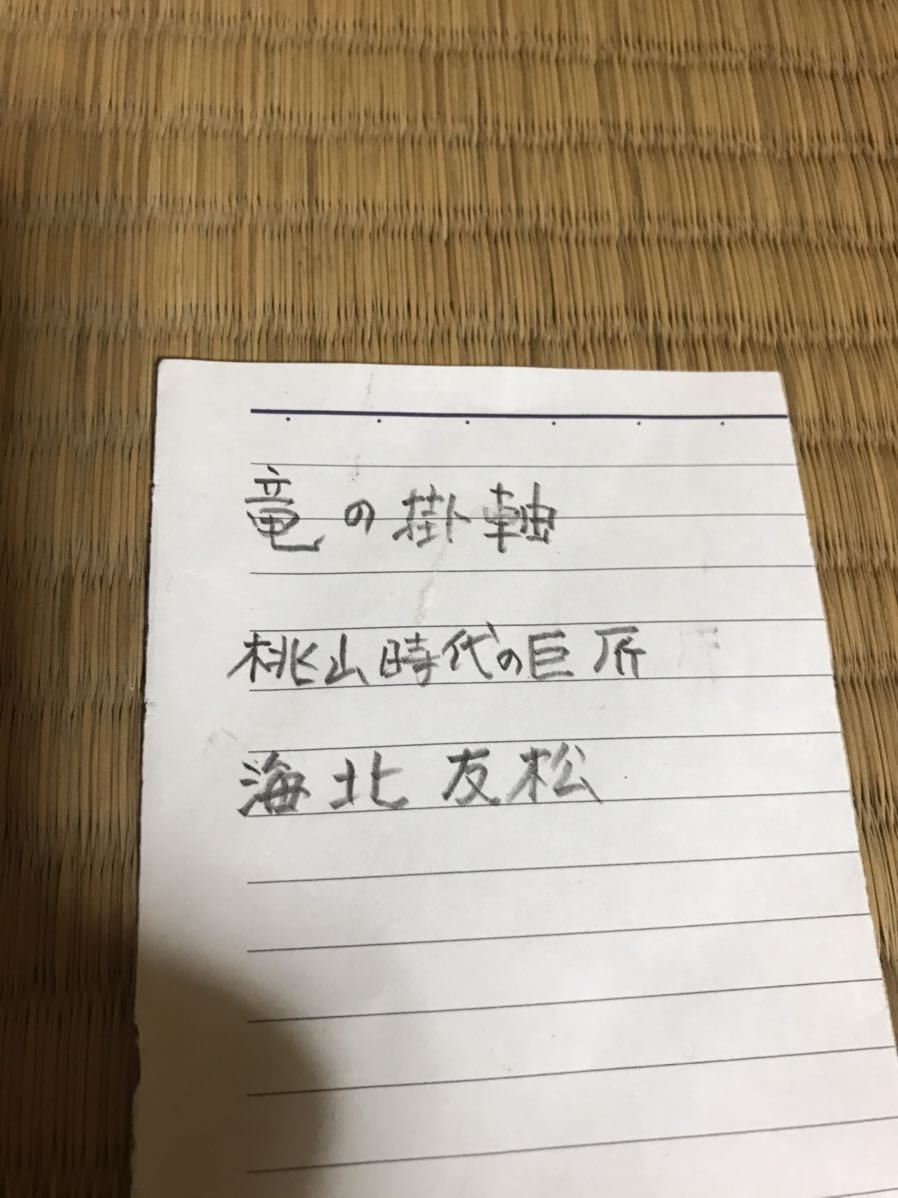 竜の掛軸
桃山時代の巨匠
海北友松